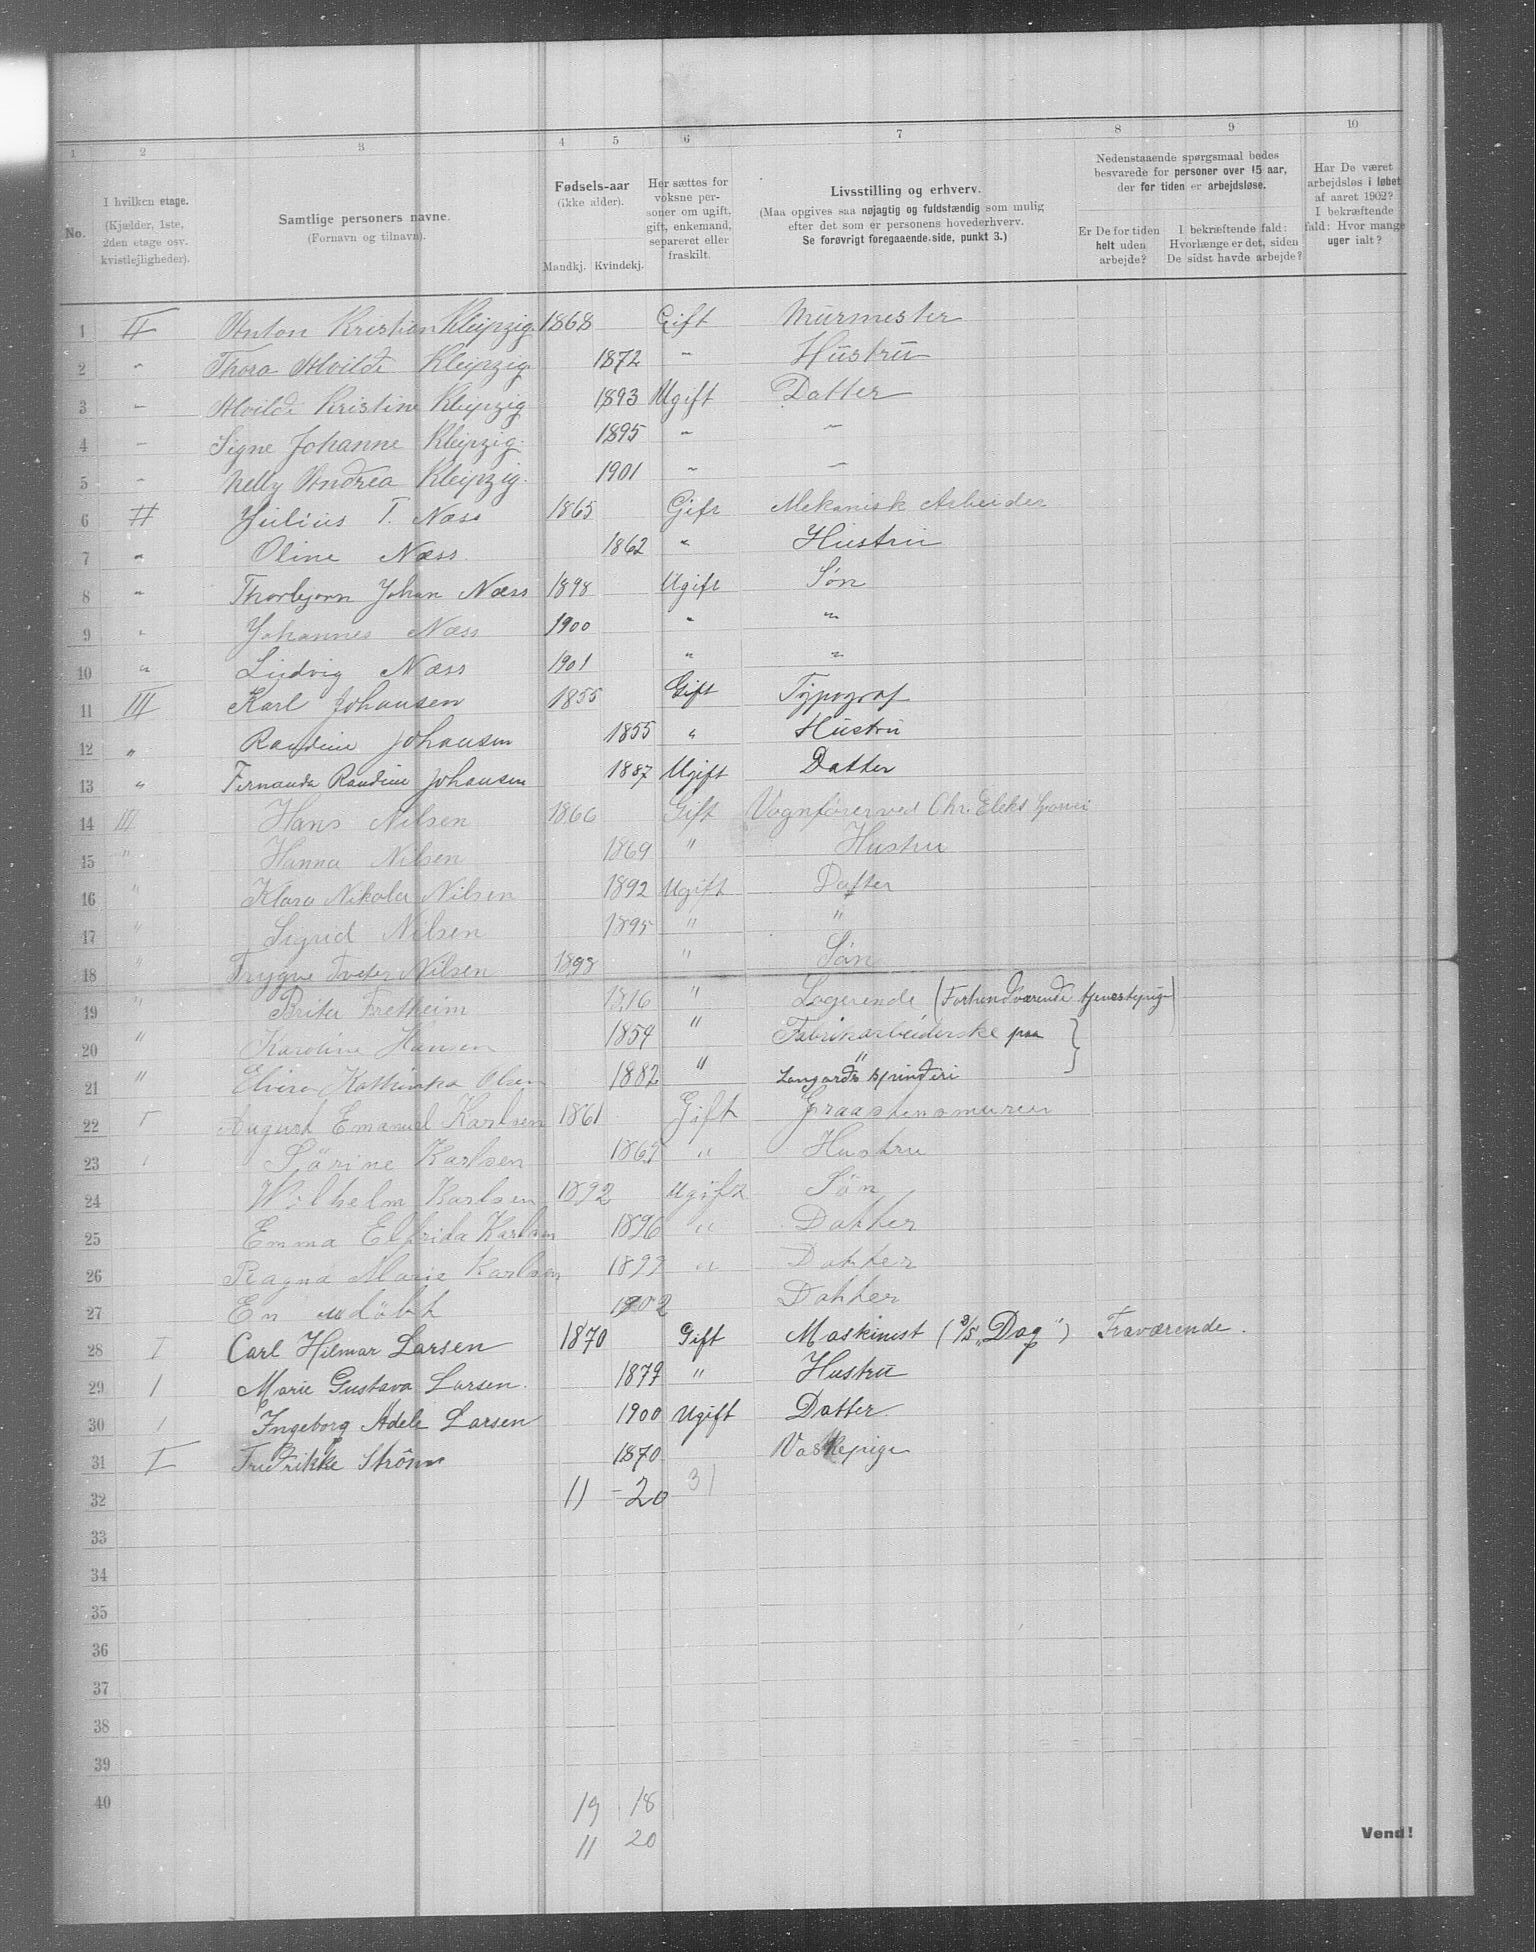 1 2 3 4 5 6 7 8 9 10
No.
I hvilken etage.
(Kjælder, 1ste,
2den etage osv.
kvistlejligheder).
Samtlige personers navne.
(Fornavn og tilnavn).
Fødsels-aar
(ikke alder).
Mandkj. Kvindekj.
Her sættes for
voksne per-
soner om ugift,
gift, enkemand,
separeret eller
fraskilt.
Livsstilling og erhverv.
(Maa opgives saa nøjagtig og fuldstændig som mulig
efter det som er personens hovederhverv.
Se forøvrigt foregaaende side, punkt 3.)
Nedenstaaende spørgsmaal bedes
besvarede for personer over 15 aar,
der for tiden er arbejdsløse.
Er De for tiden
helt uden
arbejde?
I bekræftende fald:
Hvorlænge er det, siden
De sidst havde arbejde?
Har De været
arbejdsløs i løbet
af aaret 1902?
I bekræftende
fald: Hvor mange
uger ialt?
1 II Anton Kristian Kleipzig 1868 Gift Murmester
2 " Thora Alvilde Kleipzig 1872 " Hustru
3 " Alvilde Kristine Kleipzig 1893 Ugift Datter
4 " Signe Johanne Kleipzig 1895 " "
5 " Nelly Andrea Kleipzig 1901 " "
6 II Julius T. Næss 1865 Gift Mekanisk Arbeider
7 " Oline Næss 1862 " Hustru
8 " Thorbjørn Johan Næss 1898 Ugift Søn
9 " Johannes Næss 1900 " "
10 " Ludvig Næss 1901 " "
11 III Karl Johansen 1855 Gift Typograf
12 " Randine Johansen 1855 " Hustru
13 " Fernanda Randine Johansen 1887 Ugift Datter
14 III Hans Nilsen 1866 Gift Vognfører ved Chr. Elekt
15 " Hanna Nilsen 1869 " Hustru
16 " Klara Nikola Nilsen 1892 Ugift Datter
17 " Sigrid Nilsen 1895 " "
18 " Trygve Tveter Nilsen 1898 " Søn
19 " Brite Fretheim " Logerende (Forhendværende tjenestepige)
20 " Karoline Hansen 1854 " Fabrikarbeiderske paa
21 " Elvira Kathinka Olsen 1882 " " Spinderi
22 I August Emanuel Karlsen 1861 Gift Graastensmurer
23 " Sørine Karlsen 1865 " Hustru
24 Wilhelm Karlsen 1892 Ugift Søn
25 Emma Elfrida Karlsen 1896 " Datter
26 Ragna Marie Karlsen 1899 " Datter
27 En udøbt 1902 Datter
28 I Carl Hilmar Larsen 1870 Gift Maskinist (D/S „Dag") Fraværende.
29 1 Marie Gustava Larsen. 1879 " Hustru
30 1 Ingeborg Adele Larsen 1900 Ugift Datter.
31 I Fredrikke Strôm 1870 Vaskepige
32 11 - 20 31
33
34
35
36
37
38
39
40
19 18
11 20
Vend!